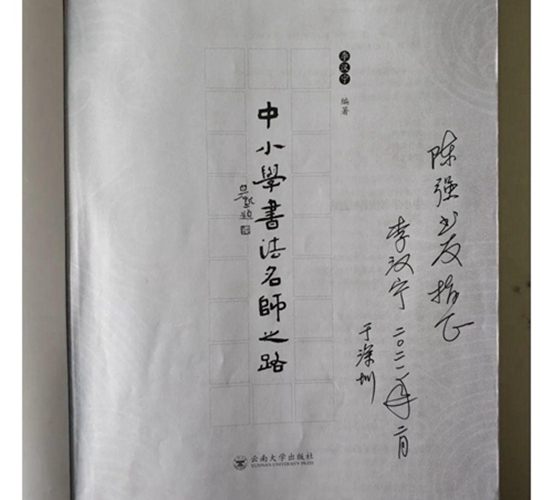 陈强书友指正
李汉宁 二〇二一年二月
于深圳
李汉宁 编著
中小學書法名師之路
吴歡題
云南大学出版社
YUNNAN UNIVERSITY PRESS